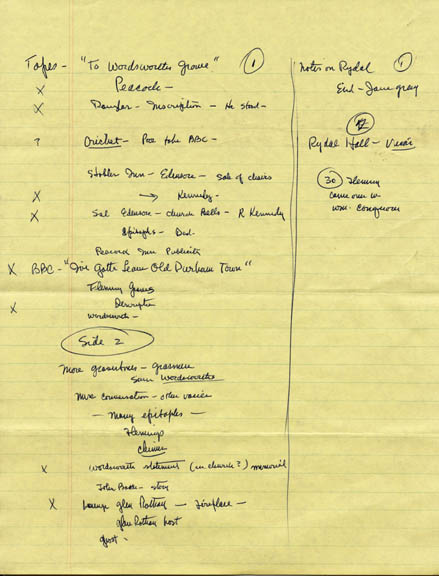 Tapes - "To Wordsworths Grave" 1
x Peacock -
x Inscription - He stood -
? Cricket - BBC -
Inn - Edensor - Sale of chairs
x → Kennedy -
x Edensor - church Bells - R Kennedy
Epitaphs - Dad.
Peacock Inn Publicity
x BBC - "I've Gotta Leam Old Durham Town"
Fleming Graves
x Description
wordsworth -
Side 2
more gravestones - grasmere
Wordsworths
more conversation - other voices
- many epitaphs -
Flemings
x wordsworth statement (in church?) memorial
John - story
x Lounge glen Rothay - Fireplace -
glen Rothay host
ghost -
notes on Rydal 1
End - Jane gray
Rydal Hall -
30 Fleming
came over w.
wm. conqueror